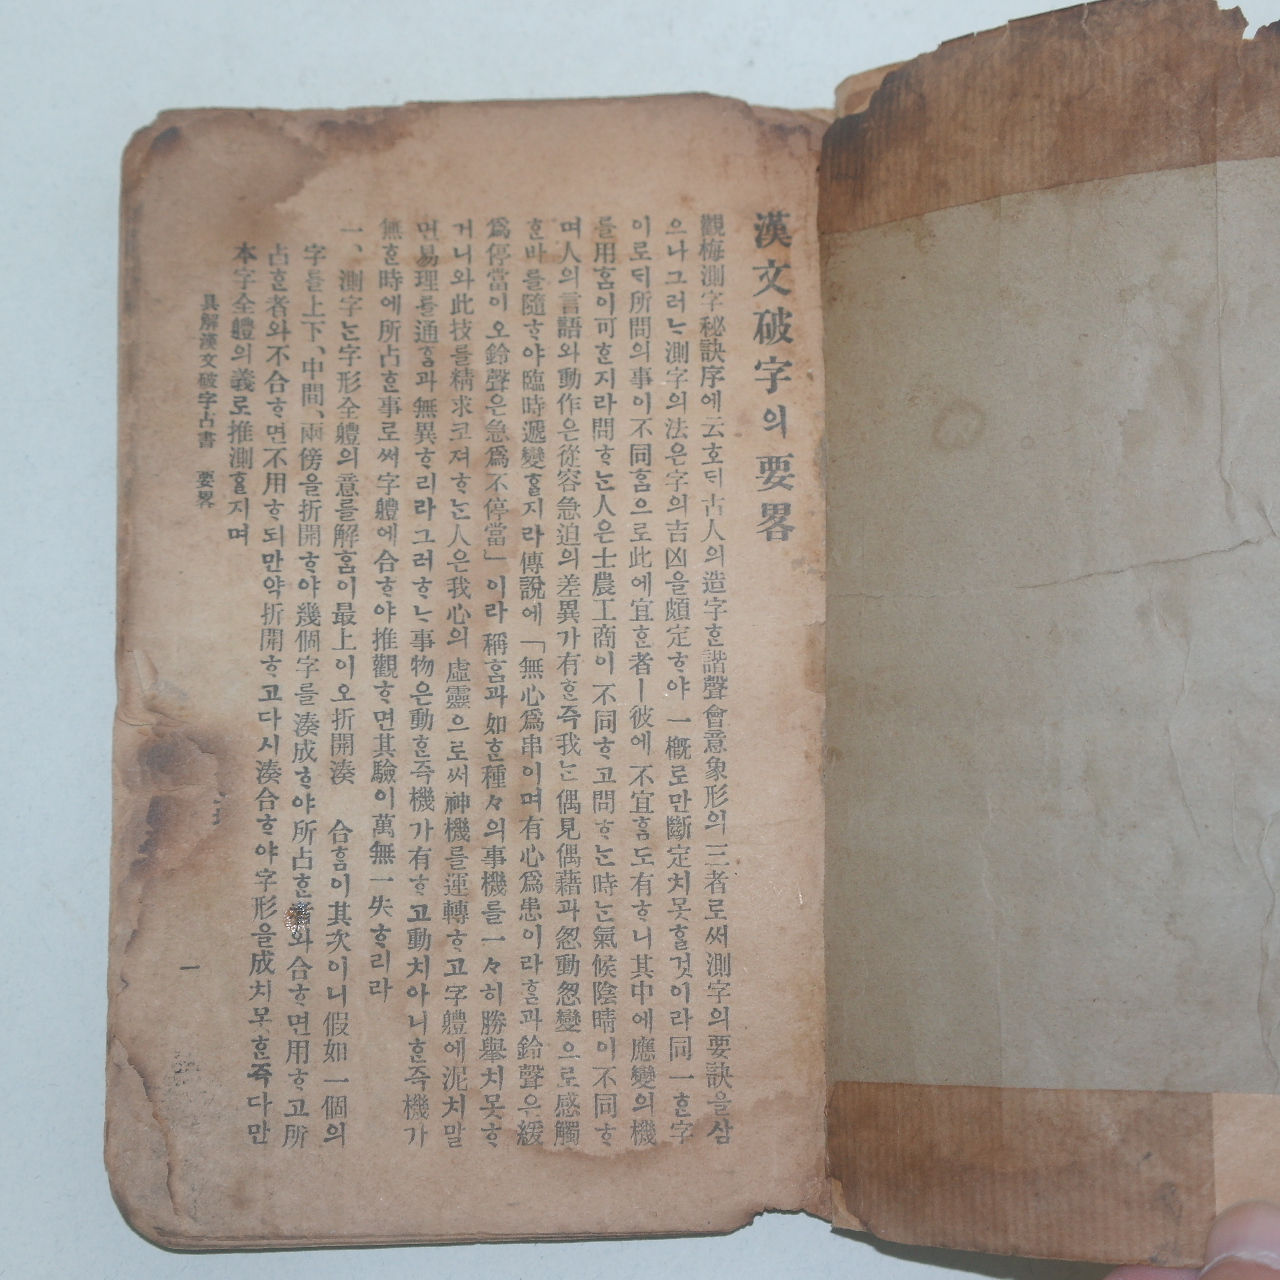 漢文破字의要畧
觀梅測字秘訣序에云호ᄃᆡ古人의造字ᄒᆞᆫ諧聲會意象形의三者로써測字의要訣을삼
으나그러ᄂᆞ測字의法은字의吉凶을頗定ᄒᆞ야一槪로만斷定치못ᄒᆞᆯ것이라同一ᄒᆞᆫ字
이로ᄃᆡ所問의事이不同ᄒᆞᆷ으로此에宜ᄒᆞᆫ者ㅣ彼에不宜ᄒᆞᆷ도有ᄒᆞ니其中에應變의機
를用ᄒᆞᆷ이可ᄒᆞᆫ지라問ᄒᆞᄂᆞᆫ人은士農工商이不同ᄒᆞ고問ᄒᆞᄂᆞᆫ時ᄂᆞᆫ氣候陰晴이不同ᄒᆞ
며人의言語와動作은從容急迫의差異가有ᄒᆞᆫ즉我ᄂᆞᆫ偶見偶藉과忽動忽變으로感觸
ᄒᆞᆫ바를隨ᄒᆞ야臨時遞變ᄒᆞᆯ지라傳說에「無心爲串이며有心爲患이라ᄒᆞᆯ과鈴聲은緩
爲停當이오鈴聲은急爲不停當」이라稱ᄒᆞᆷ과如ᄒᆞᆫ種々의事機를一々히勝擧치못ᄒᆞ
거니와此技를精求코져ᄒᆞᄂᆞᆫ人은我心의虛靈으로써神機를運轉ᄒᆞ고字體에泥치말
면易理를通ᄒᆞᆷ과無異ᄒᆞ리라그러ᄒᆞᄂᆞ事物은動ᄒᆞᆫ즉機가有ᄒᆞ고動치아니ᄒᆞᆫ즉機가
無ᄒᆞᆫ時에所占ᄒᆞᆫ事로써字體에合ᄒᆞ야推觀ᄒᆞ면其驗이萬無一失ᄒᆞ리라
一、測字ᄂᆞᆫ字形全體의意를解ᄒᆞᆷ이最上이오折開湊 合ᄒᆞᆷ이其次이니假如一個의
字를上下、中間、兩傍을折開ᄒᆞ야幾個字를湊成ᄒᆞ야所占ᄒᆞᆫ者와合ᄒᆞ면用ᄒᆞ고所
占ᄒᆞᆫ者와不合ᄒᆞ면不用ᄒᆞ되만약折開ᄒᆞ고다시湊合ᄒᆞ야字形을成치못ᄒᆞᆫ즉다만
本字全體의義로推測ᄒᆞᆯ지며
具解漢文破字占書 要畧
一